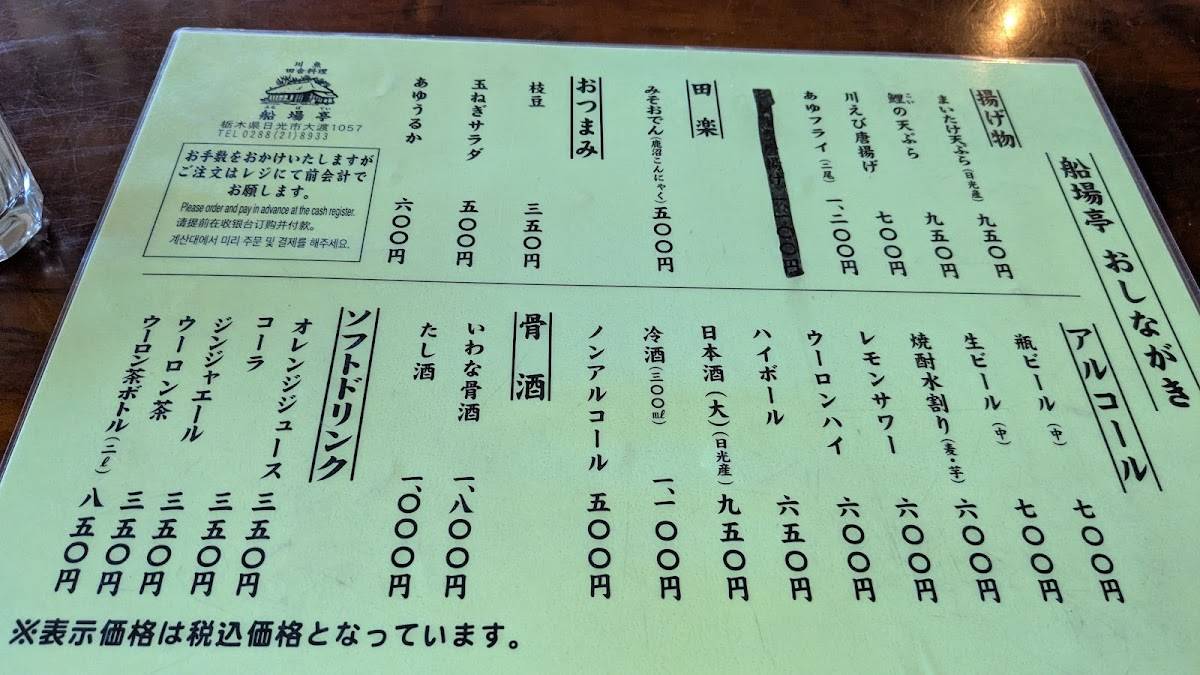 船場亭 おしながき
揚げ物
まいたけ天ぷら(日光産) 九五〇円
鯉の天ぷら 九五〇円
こい
川えび唐揚げ 七〇〇円
あゆフライ(二尾) 一、二〇〇円
田楽
みそおでん(鹿沼こんにゃく) 五〇〇円
おつまみ
枝豆 三五〇円
玉ねぎサラダ 五〇〇円
あゆうるか 六〇〇円
川魚
田舎料理
船場亭
ふなばてい
栃木県日光市大渡1057
TEL0288(21)8933
お手数をおかけいたしますが
ご注文はレジにて前会計で
お願します。
Please order and pay in advance at the cash register.
请提前在收银台订购并付款。
계산대에서 미리 주문 및 결제를 해주세요.
アルコール
瓶ビール(中) 七〇〇円
生ビール(中) 七〇〇円
焼酎水割り(麦・芋) 六〇〇円
レモンサワー 六〇〇円
ウーロンハイ 六〇〇円
ハイボール 六五〇円
日本酒(大)(日光産) 九五〇円
冷酒(三〇〇㎖) 一、一〇〇円
ノンアルコール 五〇〇円
骨酒
いわな骨酒 一、八〇〇円
たし酒 一、〇〇〇円
ソフトドリンク
オレンジジュース 三五〇円
コーラ 三五〇円
ジンジャエール 三五〇円
ウーロン茶 三五〇円
ウーロン茶ボトル(二ℓ) 八五〇円
※表示価格は税込価格となっています。